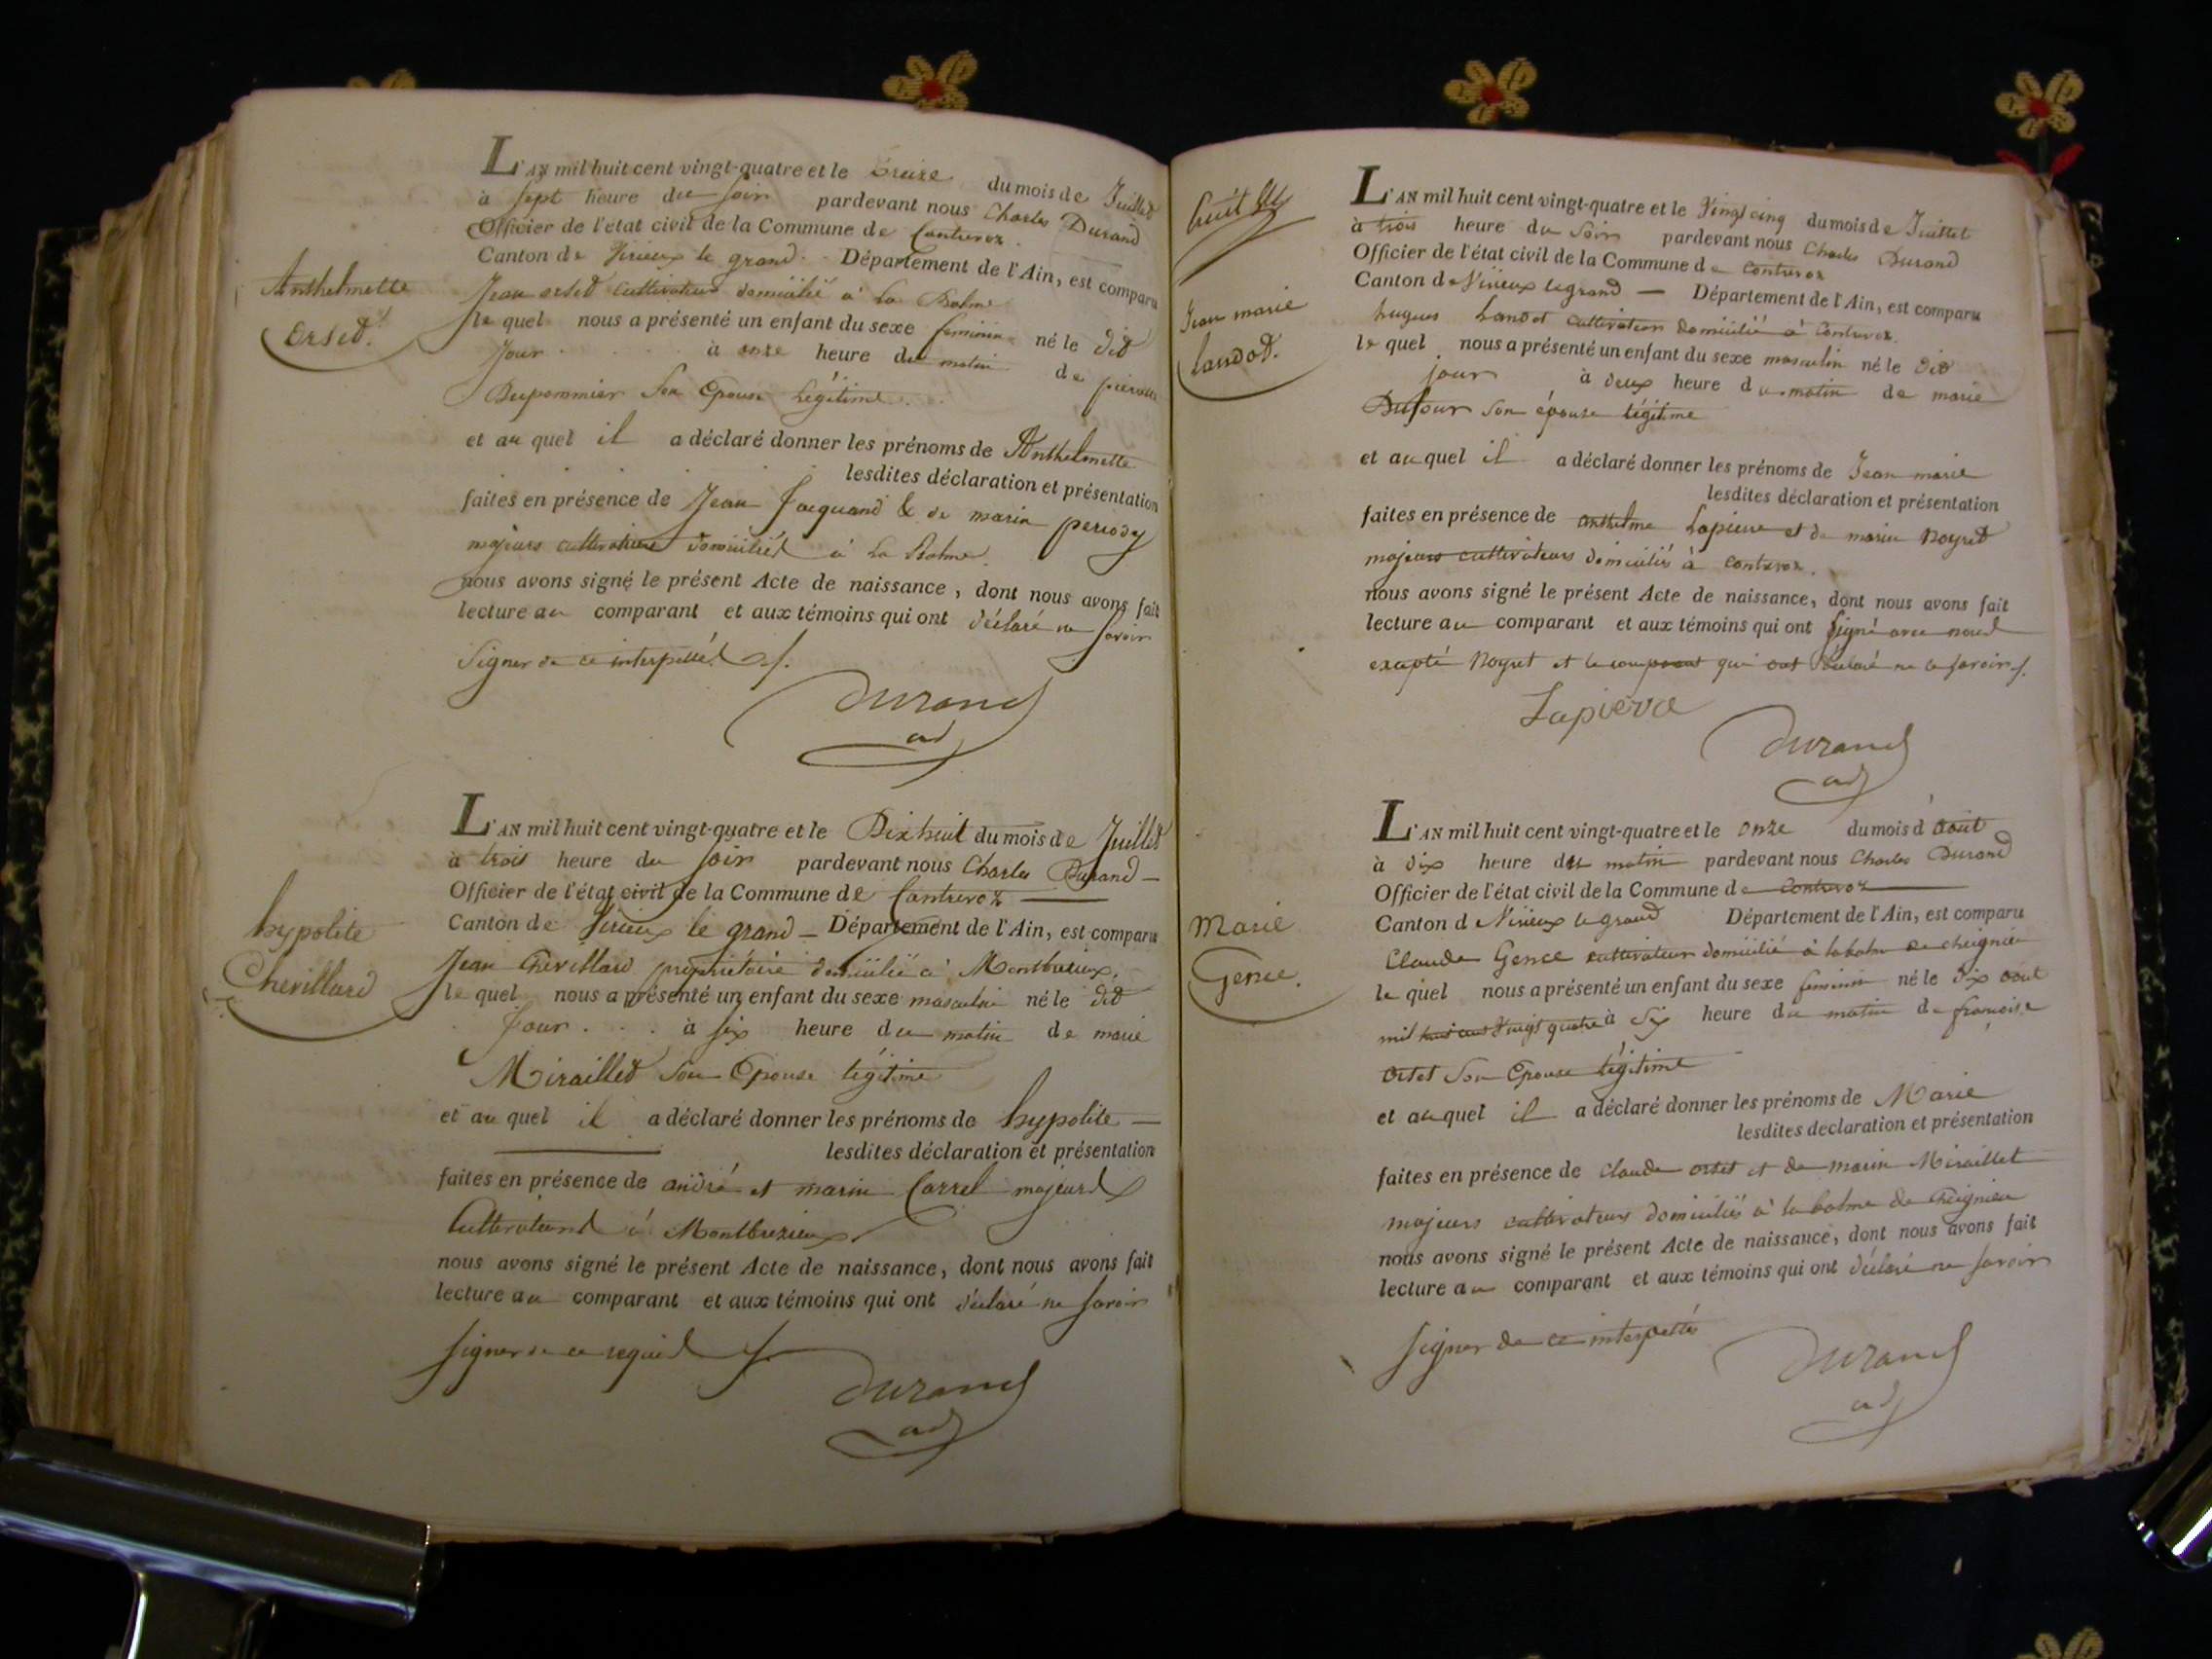 L'AN mil huit cent vingt-quatre et le treize du mois de Juillet
à sept heure du soir pardevant nous Charles Durand
Officier de l'état civil de la Commune de Contrevoz
Canton de Virieux le grand Département de l'Ain, est comparu
Anthelmette
Jean ortet cultivateur domicilié à La Balme
Ortet.
le quel nous a présenté un enfant du sexe feminin né le dit
Jour à onze heure du matin de pierrette
Dupommier Son Epouse Légitime
et au quel il a déclaré donner les prénoms de Anthelmette
lesdites déclaration et présentation
faites en présence de Jean Jacquand & de marin
majeurs cultivateurs domiciliés à La Balme
nous avons signé le présent Acte de naissance, dont nous avons fait
lecture au comparant et aux témoins qui ont déclaré ne savoir
Signer de ce interpellés
Durand
adj
L'AN mil huit cent vingt-quatre et le Dix huit du mois de Juillet
à trois heure du soir pardevant nous Charles Durand
Officier de l'état civil de la Commune de Contrevoz
Canton de Virieux le grand Département de l'Ain, est comparu
hypolite
Chevillard
Jean Chevillard propriétaire domicilié à Montbreizieux
le quel nous a présenté un enfant du sexe masculin né le dit
Jour à six heure du matin de marie
Miraillet Son Epouse légitime
et au quel il a déclaré donner les prénoms de hypolite
lesdites déclaration et présentation
faites en présence de andré et marin Carrel majeurs
Cultivateurs à Montbrezieux
nous avons signé le présent Acte de naissance, dont nous avons fait
lecture au comparant et aux témoins qui ont déclaré ne savoir
signer de ce requis
Durand
adj
huit
L'AN mil huit cent vingt-quatre et le Vingt cinq du mois de Juillet
à trois heure du soir pardevant nous Charles Durand
Officier de l'état civil de la Commune de Contrevoz
Canton de Virieux legrand Département de l'Ain, est comparu
Jean marie
landot.
hugues Landot cultivateur domicilié à Contrevoz
le quel nous a présenté un enfant du sexe masculin né le dit
jour à deux heure du matin de marie
Dufour son épouse légitime
et au quel il a déclaré donner les prénoms de Jean marie
lesdites déclaration et présentation
faites en présence de anthelme Lapierre et de marin Noyret
majeurs cultivateurs domiciliés à Contrevoz.
nous avons signé le présent Acte de naissance, dont nous avons fait
lecture au comparant et aux témoins qui ont signé avec nous
excepté Noyret et le comparant qui ont déclaré ne le savoir
Lapierre
Durand
adj
L'AN mil huit cent vingt-quatre et le onze du mois d'août
à dix heure du matin pardevant nous Charles Durand
Officier de l'état civil de la Commune de Contrevoz
Canton d Virieux legrand Département de l'Ain, est comparu
Marie
Gence.
Claude Gence cultivateur domicilié à labalme de cheignieu
le quel nous a présenté un enfant du sexe feminin né le dix aout
mil huit cent vingt quatre à Six heure du matin de françoise
Ortet Son Epouse légitime
et au quel il a déclaré donner les prénoms de Marie
lesdites declaration et présentation
faites en présence de claude ortet et de marin Miraillet
majeurs cultivateurs domiciliés à la balme de cheignieu
nous avons signé le présent Acte de naissance, dont nous avons fait
lecture au comparant et aux témoins qui ont déclaré ne savoir
signer de ce interpellés
Durand
adj